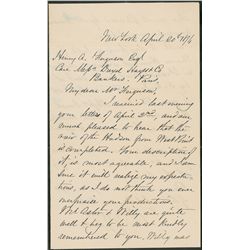 New York April 20th 1874
Henry A. Ferguson Esq
Care Messrs Drexel Harjes & Co
Bankers. Paris.
My dear Mr Ferguson,
I received last evening
your letter of April 2nd, and am
much pleased to hear that the
view of the Hudson from West Point
is completed. Your description of
it, is most agreeable, and I am
sure it will realize my expecta-
tions, as I do not think you ever
exaggerate your productions.
Mrs and Willy are quite
well & beg to be most kindly
remembered to you. Willy was